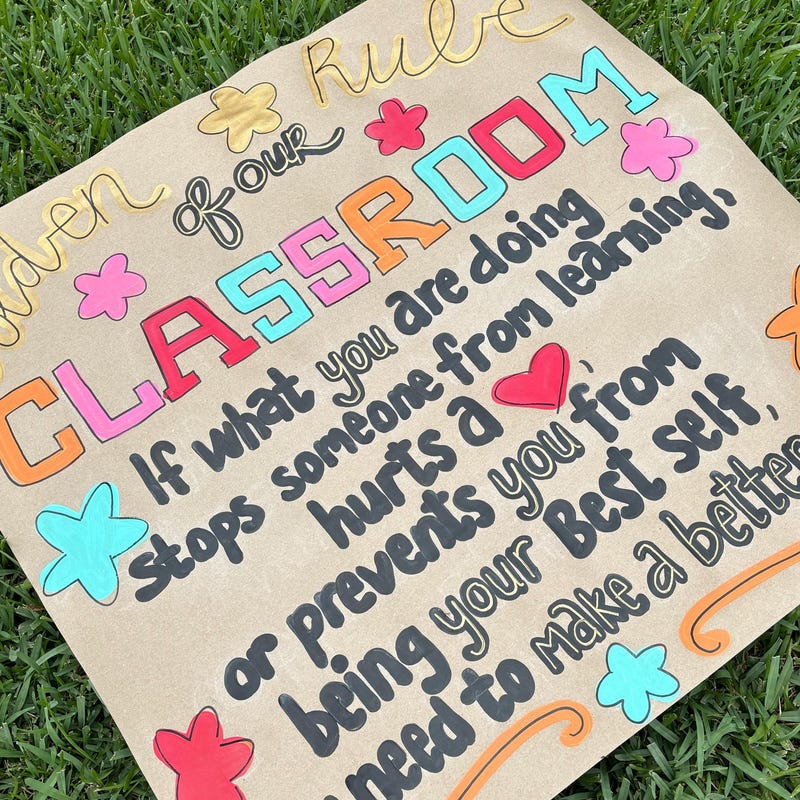 olden Rule
of our
CLASSROOM
If what you are doing
stops someone from learning,
hurts a ❤,
or prevents you from
being your Best self,
need to make a better